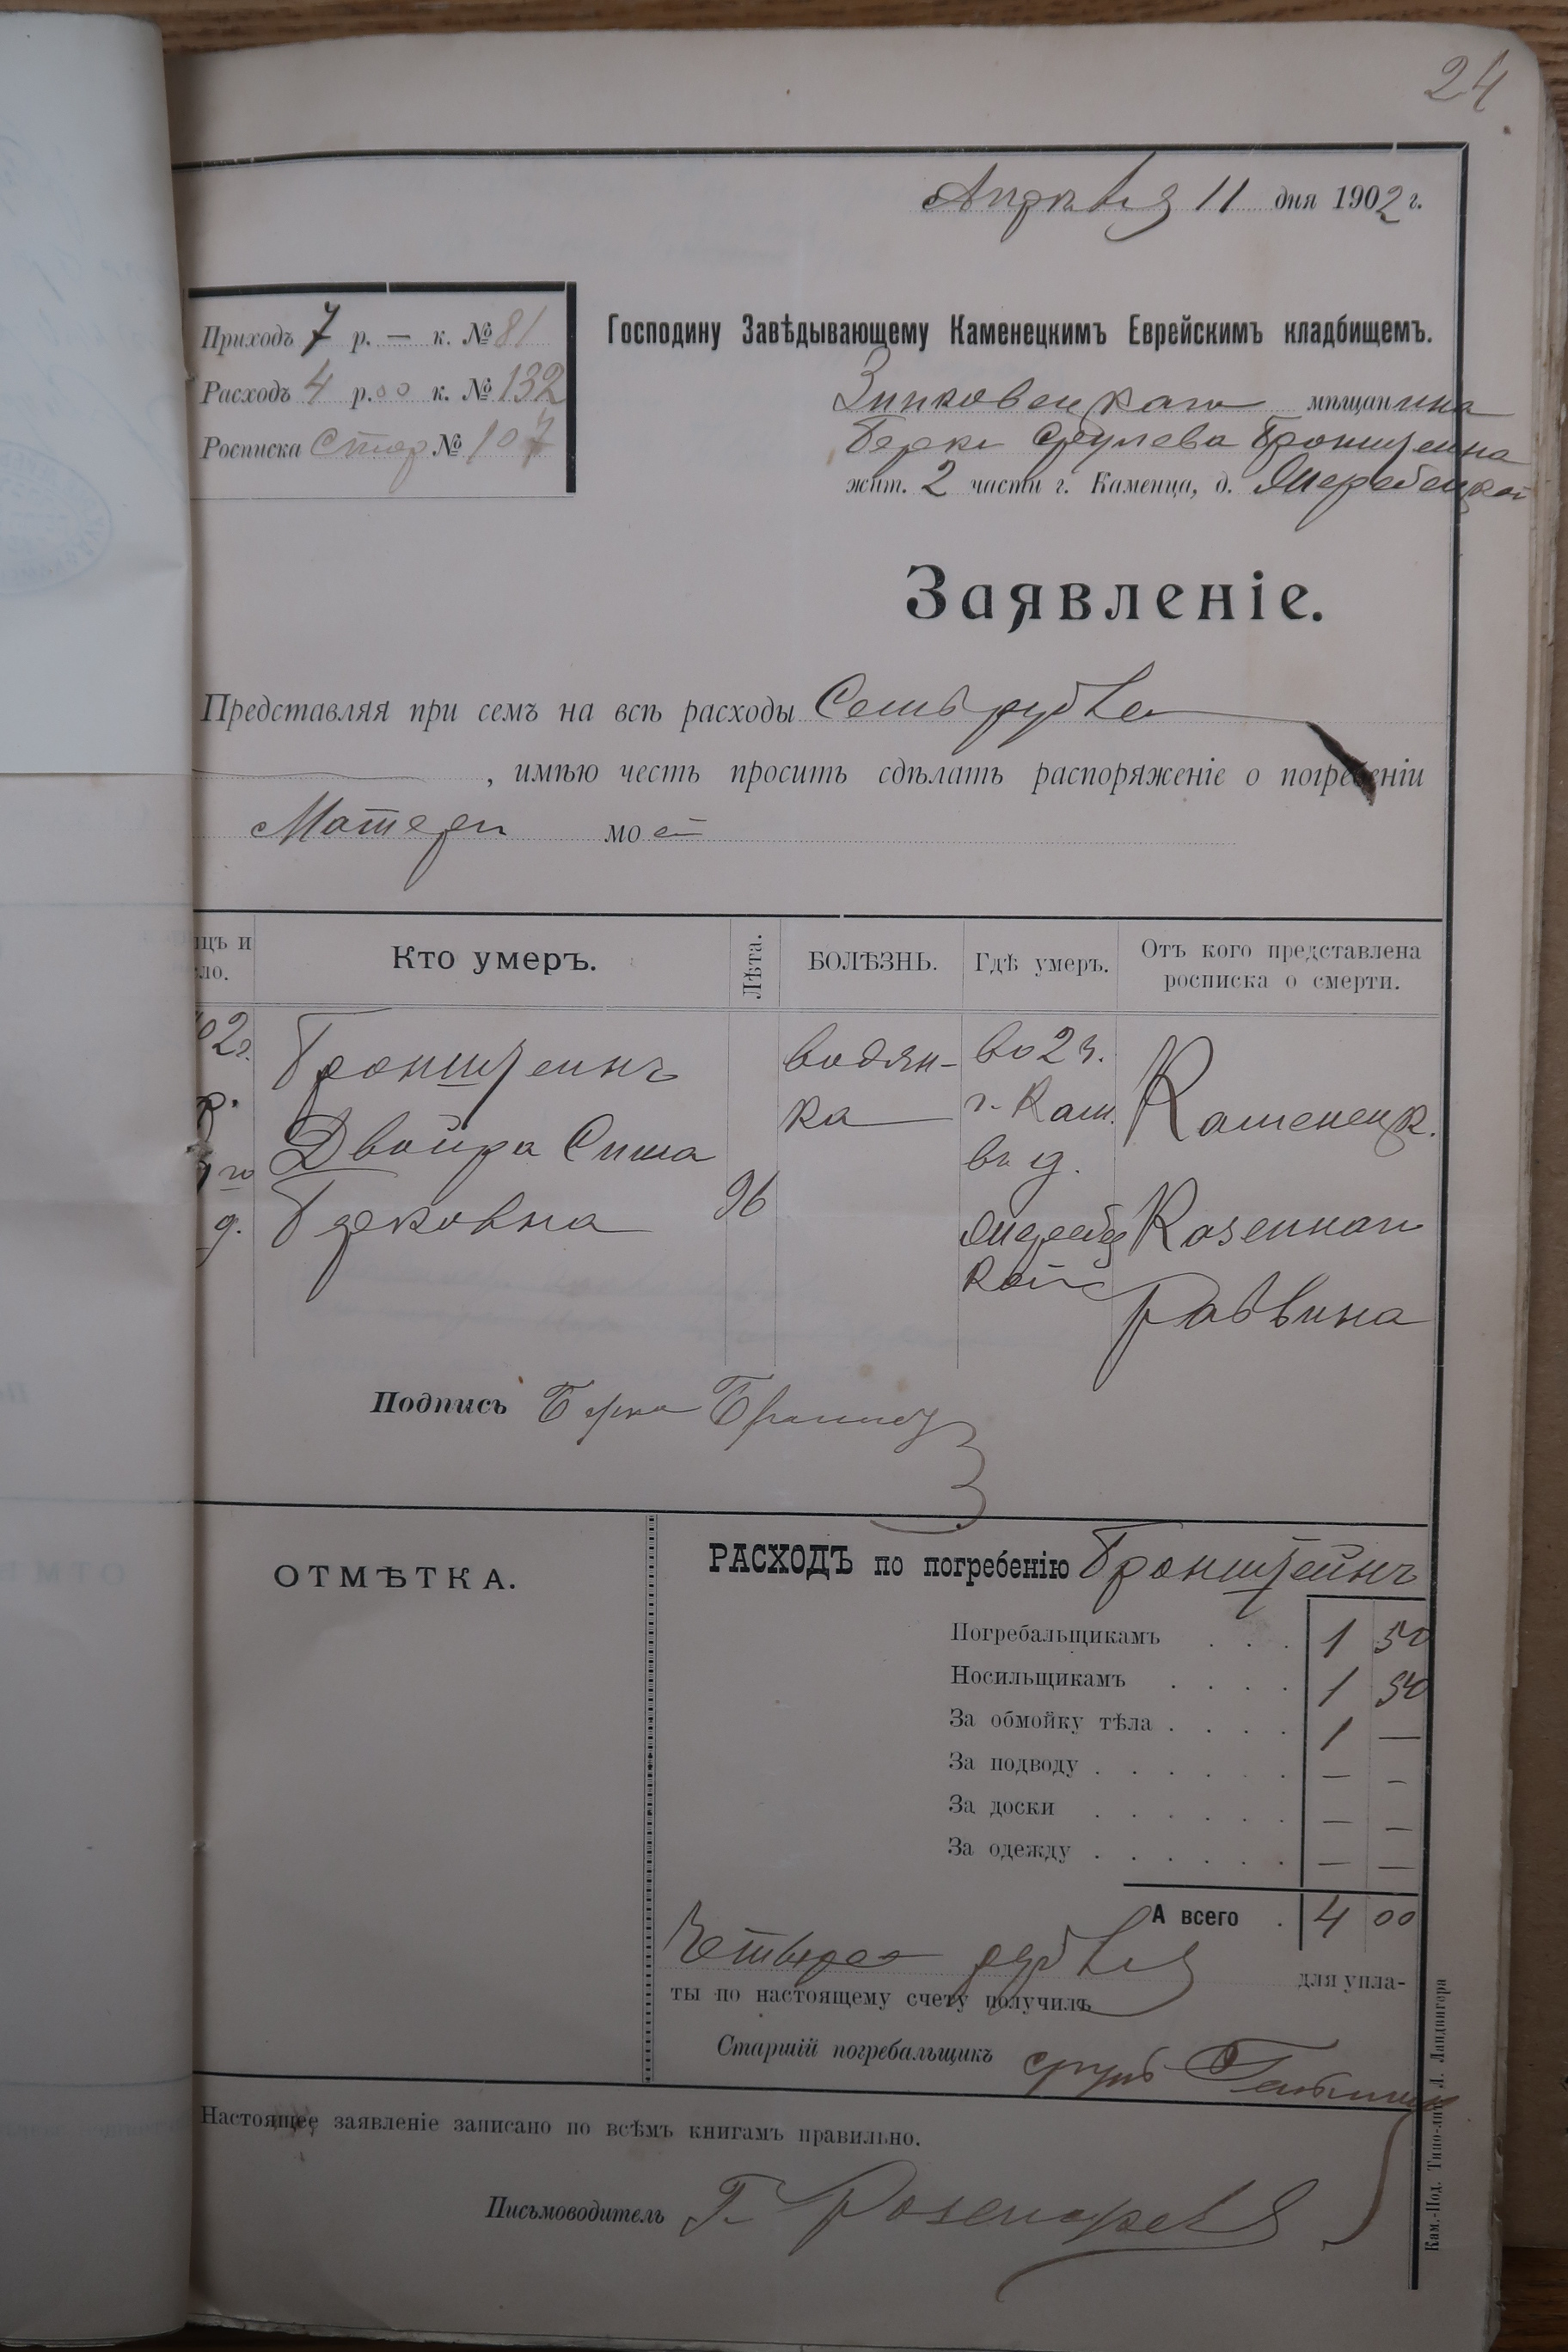 24
Апреля 11 дня 1902 г.
Приходъ 7 р. — к. № 81
Расходъ 4 р. 00 к. № 132
Росписка № 107
Господину Завѣдывающему Каменецкимъ Еврейскимъ кладбищемъ.
Зиньковецкаго мѣщанина
Берки Бронштейна
жит. 2 части г. Каменца, д.
Заявленіе.
Представляя при семъ на всѣ расходы Семь рублей
, имѣю честь просить сдѣлать распоряженіе о погребеніи
Матери моей
цъ и
ло.
Кто умеръ.
Лѣта.
БОЛѢЗНЬ.
Гдѣ умеръ.
Отъ кого представлена
росписка о смерти.
02г.
р.
го
д.
Бронштейнъ
Двойра Сима
Берковна
96
водян-
ка
во 2 ч.
г. Кам.
въ д.
Каменецк.
Казеннаго
Раввина
Подпись Берка
ОТМѢТКА.
РАСХОДЪ по погребенію Бронштейнъ
Погребальщикамъ . . . 1 50
Носильщикамъ . . . . 1 50
За обмойку тѣла . . . . 1 —
За подводу . . . . . . — –
За доски . . . . . . — —
За одежду . . . . . . — —
А всего . 4 00
Четыре рубля для упла-
ты по настоящему счету получилъ
Старшій погребальщикъ
Настоящее заявленіе записано по всѣмъ книгамъ правильно.
Письмоводитель Г.
Кам.-Под. Типо-лит. Л. Ландвигера